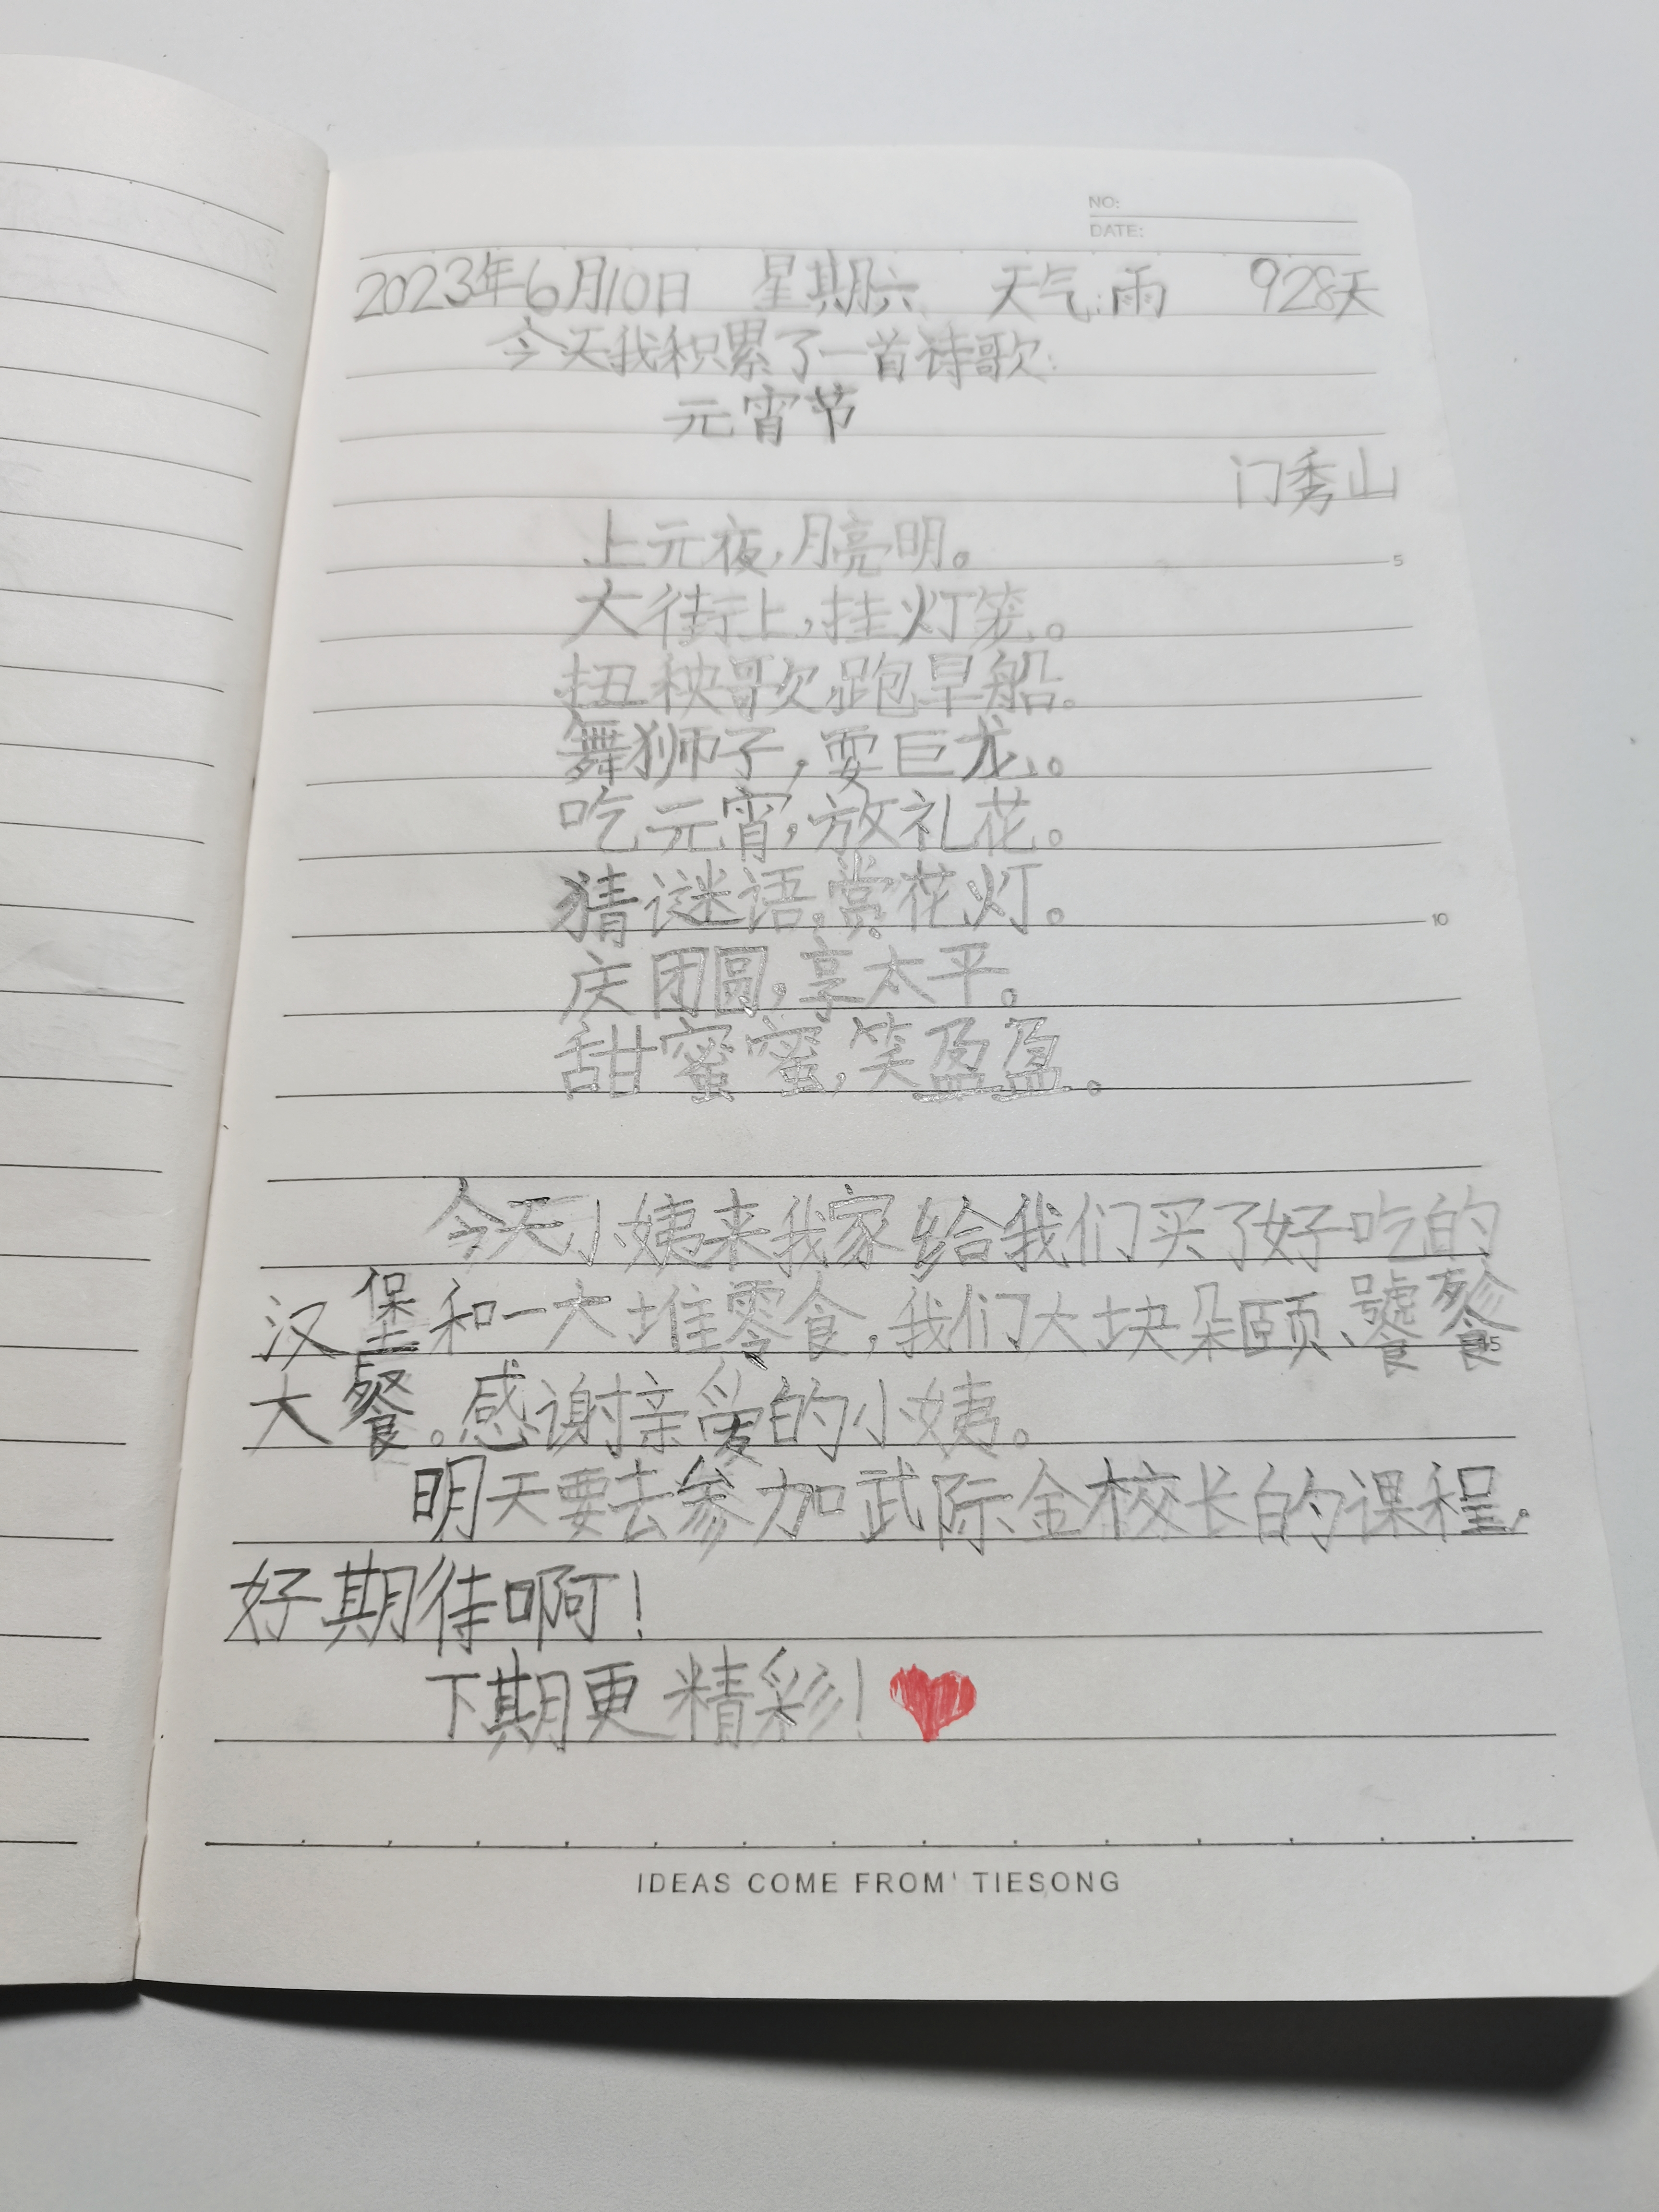 NO:
DATE:
2023年6月10日 星期六 天气:雨 928天
今天我积累了一首诗歌:
元宵节
门秀山
上元夜,月亮明。
大街上,挂灯笼。
扭秧歌,跑旱船。
舞狮子,耍巨龙。
吃元宵,放礼花。
猜谜语,赏花灯。
庆团圆,享太平。
甜蜜蜜,笑盈盈。
今天小姨来我家给我们买了好吃的
汉堡和一大堆零食,我们大块朵颐、饕餮
大餐。感谢亲爱的小姨。
明天要去参加武际金校长的课程,
好期待啊!
下期更精彩!
IDEAS COME FROM' TIESONG
5
10
15